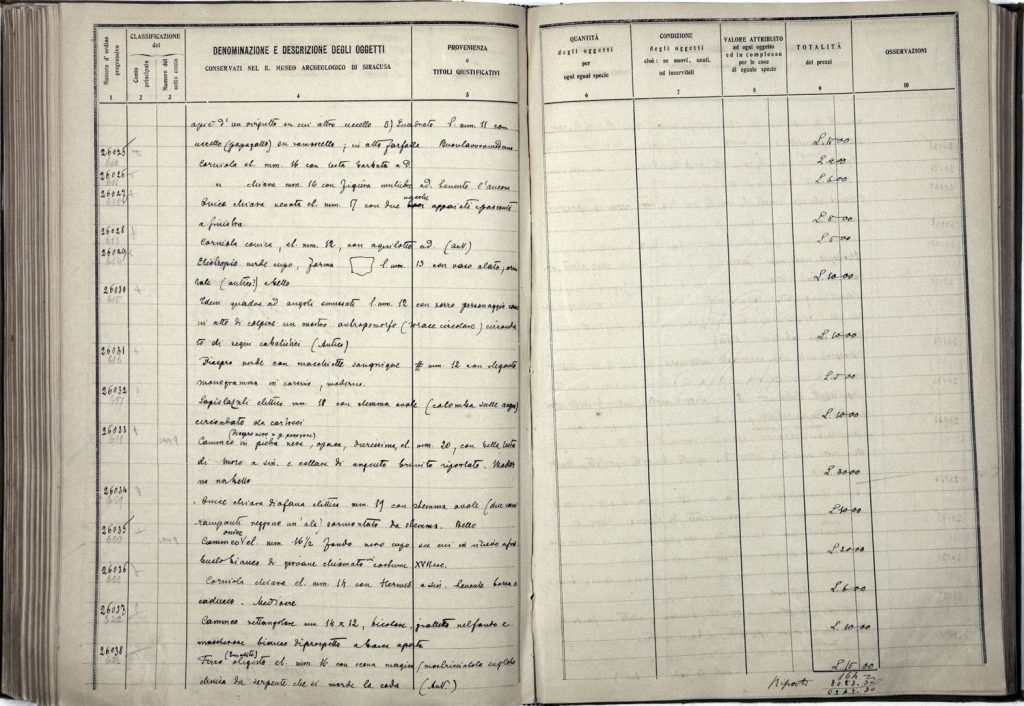 Numero d'ordine progressivo
CLASSIFICAZIONE del
Conto principale
Numero del sotto conto
DENOMINAZIONE E DESCRIZIONE DEGLI OGGETTI
CONSERVATI NEL R. MUSEO ARCHEOLOGICO DI SIRACUSA
PROVENIENZA
e
TITOLI GIUSTIFICATIVI
QUANTITÀ
degli oggetti
per
ogni eguali specie
CONDIZIONE
degli oggetti
cioè: se nuovi, usati,
od inservibili
VALORE ATTRIBUITO
ad ogni oggetto
ed in complesso
per le cose
di eguale specie
TOTALITÀ
dei prezzi
OSSERVAZIONI
1 2 3 4 5 6 7 8 9 10
d'un virgulto su cui altro uccello 3) l. mm. 11 con
uccello (papagallo) su ramoscello, in alto farfalla. L. 15 00
26025 Corniola el. mm. 16 con testa barbata a D. L. 4 00
26026 " chiara mm. 16 con figura muliebre ad. tenente l'ancora L. 6 00
26027 Onice chiara venata el. mm. 17 con due aquile appaiate
a sinistra. L. 5 00
26028 Corniola conica, el. mm. 12, con aquilotto ad. (ant.) L. 5 00
26029 Eliotropio verde cupo, forma l. mm. 13 con vaso alato,
(antico?) bello L. 10 00
26030 Idem quadra ad angoli smussati l. mm. 12 con personaggio
in atto di colpire un mostro antropomorfo
to di segni cabalistici (Antico) L. 10 00
26031 Diaspro verde con macchiette sanguigne mm. 12 con elegante
monogramma in corsivo, moderno. L. 5 00
26032 Lapislazuli elittico mm. 18 con stemma ovale (colomba sulle acque)
circondato da cartocci L. 10 00
26033 (Diaspro nero o p. paragone)
Cammeo in pietra nera, opaca, durissima, el. mm. 20, con bella testa
di moro a sin. e collare di argento brunito riportato. Moder
no ma bello L. 20 00
26034 Onice chiara diafana elittica mm. 19 con stemma ovale (due cani
rampanti reggono un'ala) sormontato da stemma. Bello L. 10 00
26035 Cammeo onice el. mm. 16 1/2 fondo nero cupo su cui in rilievo
busto bianco di giovane chiomato in costume XVII sec. L. 20 00
26036 Corniola chiara el. mm. 14 con Hermes a sin. tenente borsa e
caduceo. Mediocre L. 6 00
26037 Cammeo rettangolare mm. 14 x 12, bicolore, nel fondo e
mascherone bianco di prospetto a bocca aperta L. 10 00
26038 (Ematite)
Ferro oligisto el. mm 16 con scena magica
da serpente che si morde la coda (Ant.) L. 15 00
Riporto